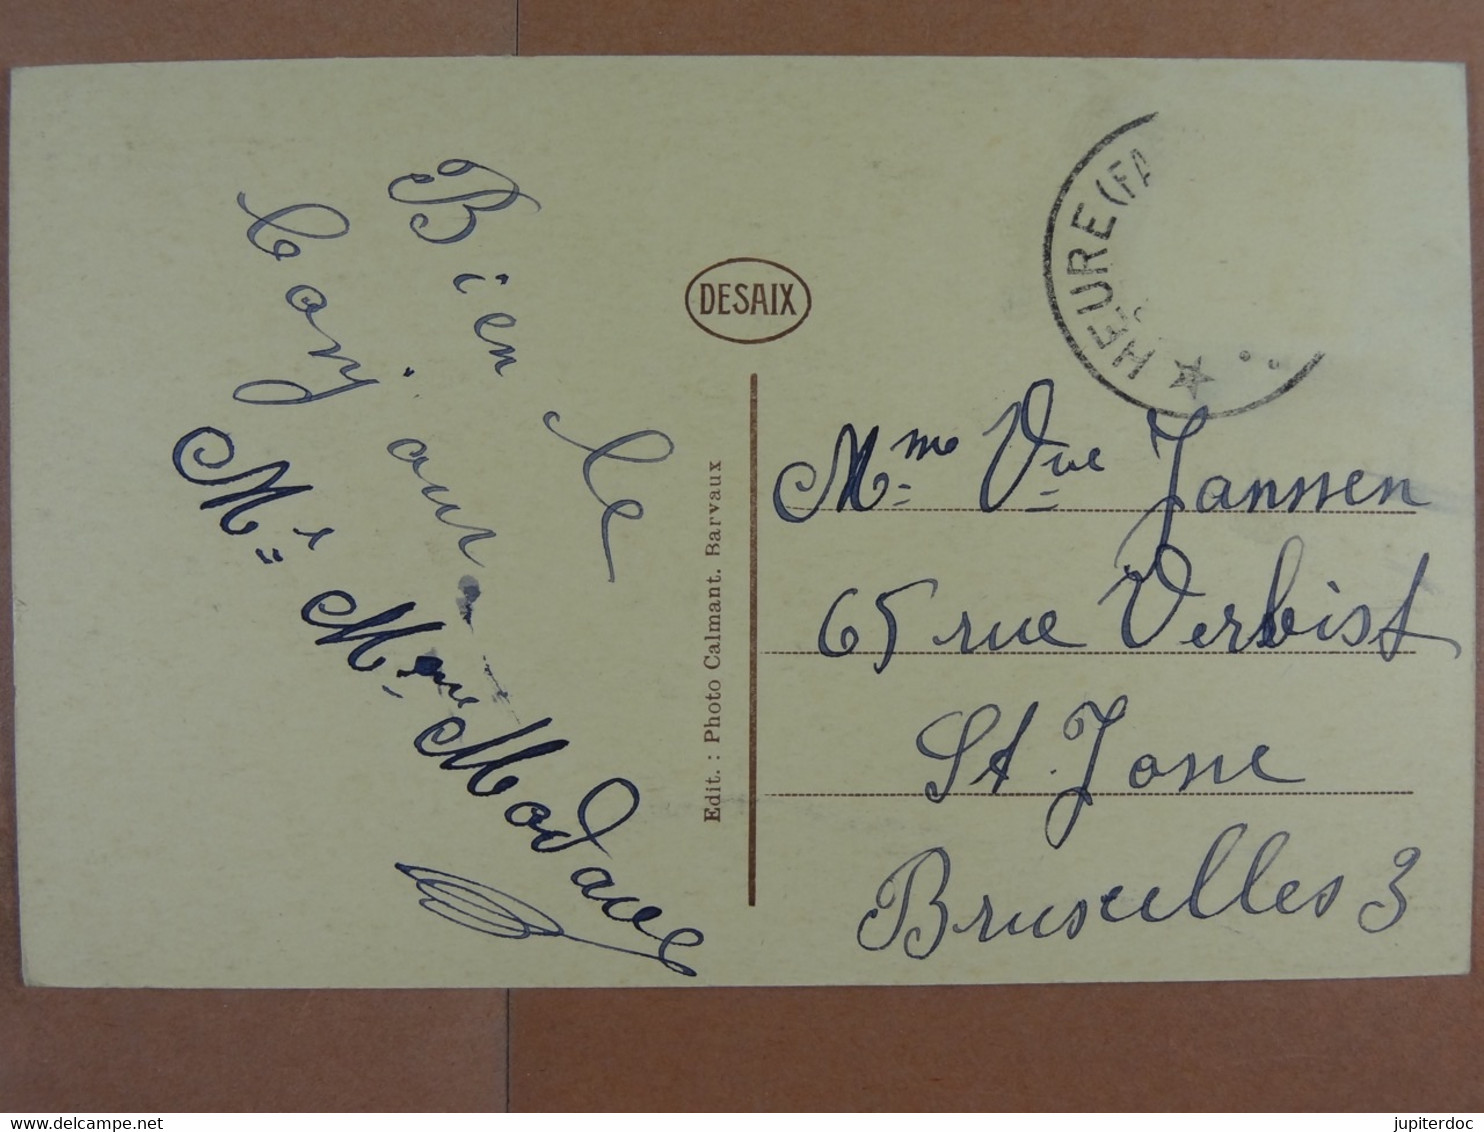 Bien le
bonjour
Mr. & Mme Modave
DESAIX
Edit. : Photo Calmant. Barvaux
HEURE (FA
Mme Vve Jannen
65 rue Verbist
St. Josse
Bruxelles 3
delcampe.net
jupiterdoc